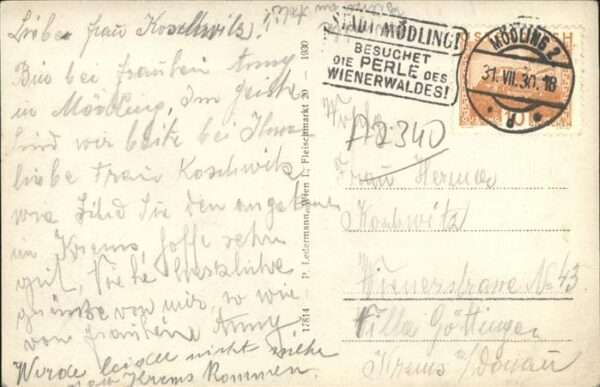 Liebe Frau Koschwitz!
Bin bei Fräulein Anny
in Mödling. Im Geiste
sind wir beide bei Ihnen
liebe Frau Koschwitz
wie sind Sie denn
in Krems, hoffe sehr
gut, Viele herzliche
Grüße von mir, so wie
von Fräulein Anny
Werde leider nicht mehr
nach Krems kommen.
17814 P. Ledermann, Wien I., Fleischmarkt 20 - 1930
STADT MÖDLING!
BESUCHET
DIE PERLE DES
WIENERWALDES!
MÖDLING 2
31.VII.30.18
A2340
Frau Hermine
Koschwitz
Wienerstrasse No 43
Villa Göttinger
Krems a/Donau